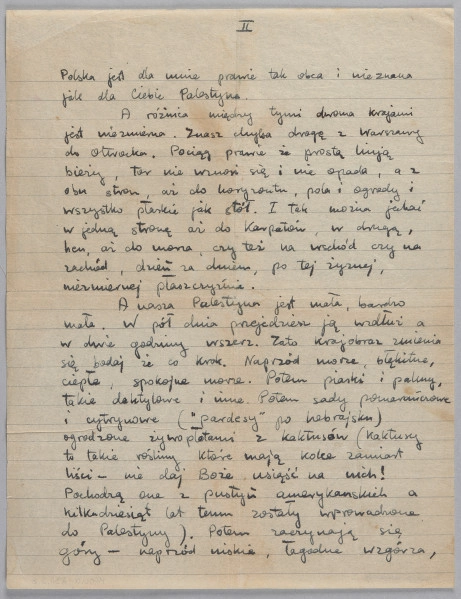 II
Polska jest dla mnie prawie tak obca i nieznana
jak dla Ciebie Palestyna.
A różnica między tymi dwoma krajami
jest niezmierna. Znasz chyba drogę z Warszawy
do Otwocka. Pociąg prawie że prostą linją
bieży, tor nie wznosi się i nie opada, a z
obu stron, aż do horyzontu, pola i ogrody i
wszystko płaskie jak stół. I tak można jechać
w jedną stronę aż do Karpatów, w drugą,
hen, aż do morza, czy też na wschód czy na
zachód, dzień za dniem, po tej żyznej,
niezmiernej płaszczyźnie.
A nasza Palestyna jest mała, bardzo
mała. W pół dnia przejedziesz ją wzdłuż a
w dwie godziny wszerz. Zato krajobraz zmienia
się bodaj że co krok. Naprzód morze, błękitne,
ciepłe, spokojne morze. Potem piaski i palmy,
takie daktylowe i inne. Potem sady pomarańczowe
i cytrynowe ("pardesy" po hebrajsku)
ogrodzone żywopłotami z kaktusów (kaktusy
to takie rośliny które mają kolce zamiast
liści – nie daj Boże usiąść na nich!
Pochodzą one z pustyń amerykańskich a
kilkadziesiąt lat temu zostały wprowadzone
do Palestyny). Potem zaczynają się
góry – naprzód niskie, łagodne wzgórza,